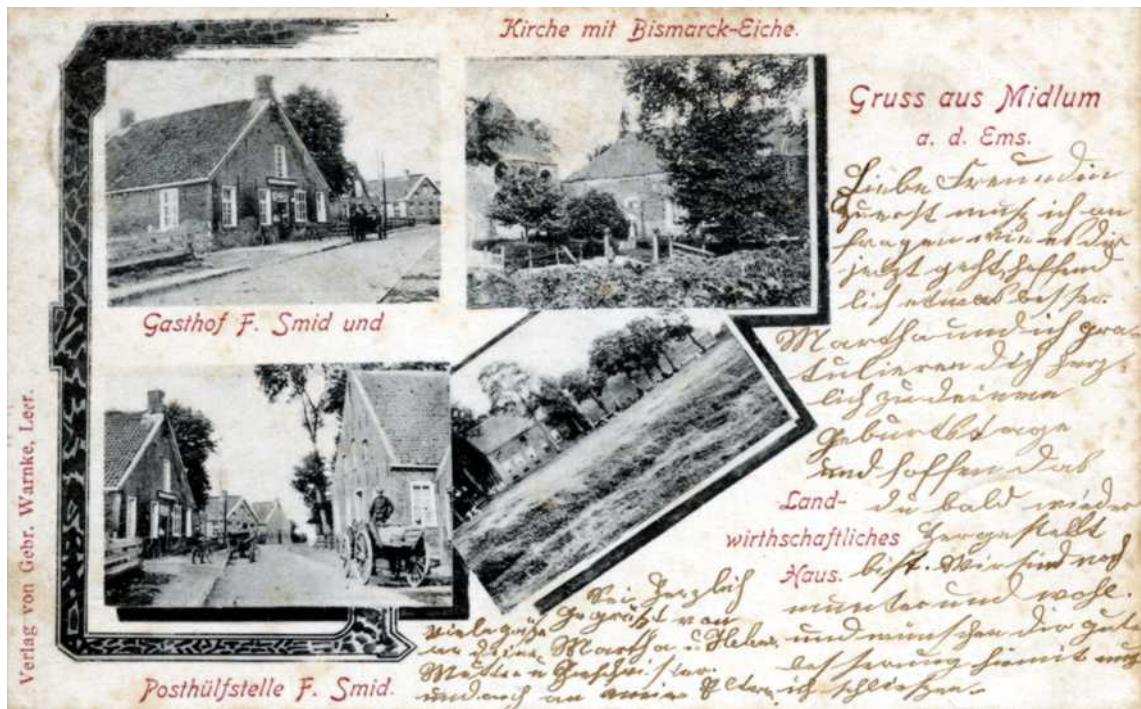 Kirche mit Bismarck-Eiche.
Gruss aus Midlum
a. d. Ems.
Gasthof F. Smid und
Posthülfstelle F. Smid.
Land-
wirthschaftliches
Haus.
Verlag von Gebr. Warnke, Leer.
Liebe Freundin
Zuerst muß ich an
fragen wie es dir
jetzt geht, hoffend
lich etwas besser.
Martha und ich gra-
tulieren dich herz-
lich zu deinem
Geburtstage
und hoffen das
du bald wieder
hergestellt
bist. Wir sind noch
munter und wohl.
und wünschen dir gute
besserung hiermit muß
ich schließen.
Sei herzlich
gegrüßt von
Martha u.
Viele grüße
an deine
Mutter u Geschwister.
und auch an